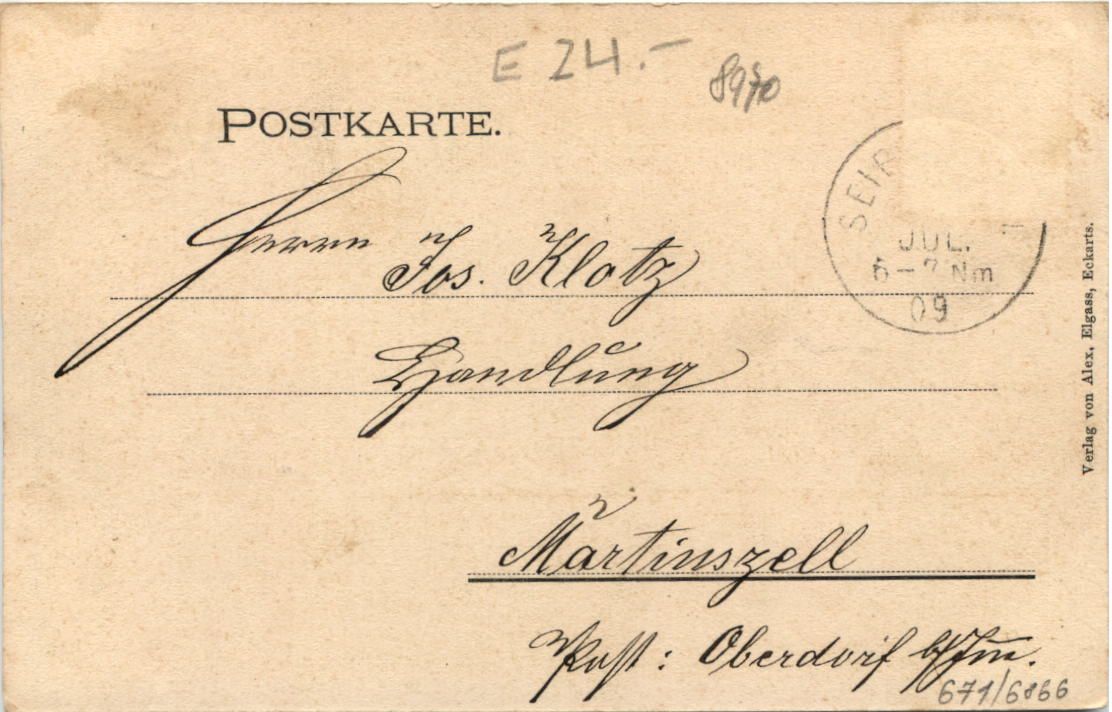 E 24.-
8970
POSTKARTE.
Herrn Jos. Klotz
Handlung
Martinszell
Post: Oberdorf b/Im.
671/6866
SEIF
JUL.
6-7 Nm
09
Verlag von Alex, Elgass, Eckarts.